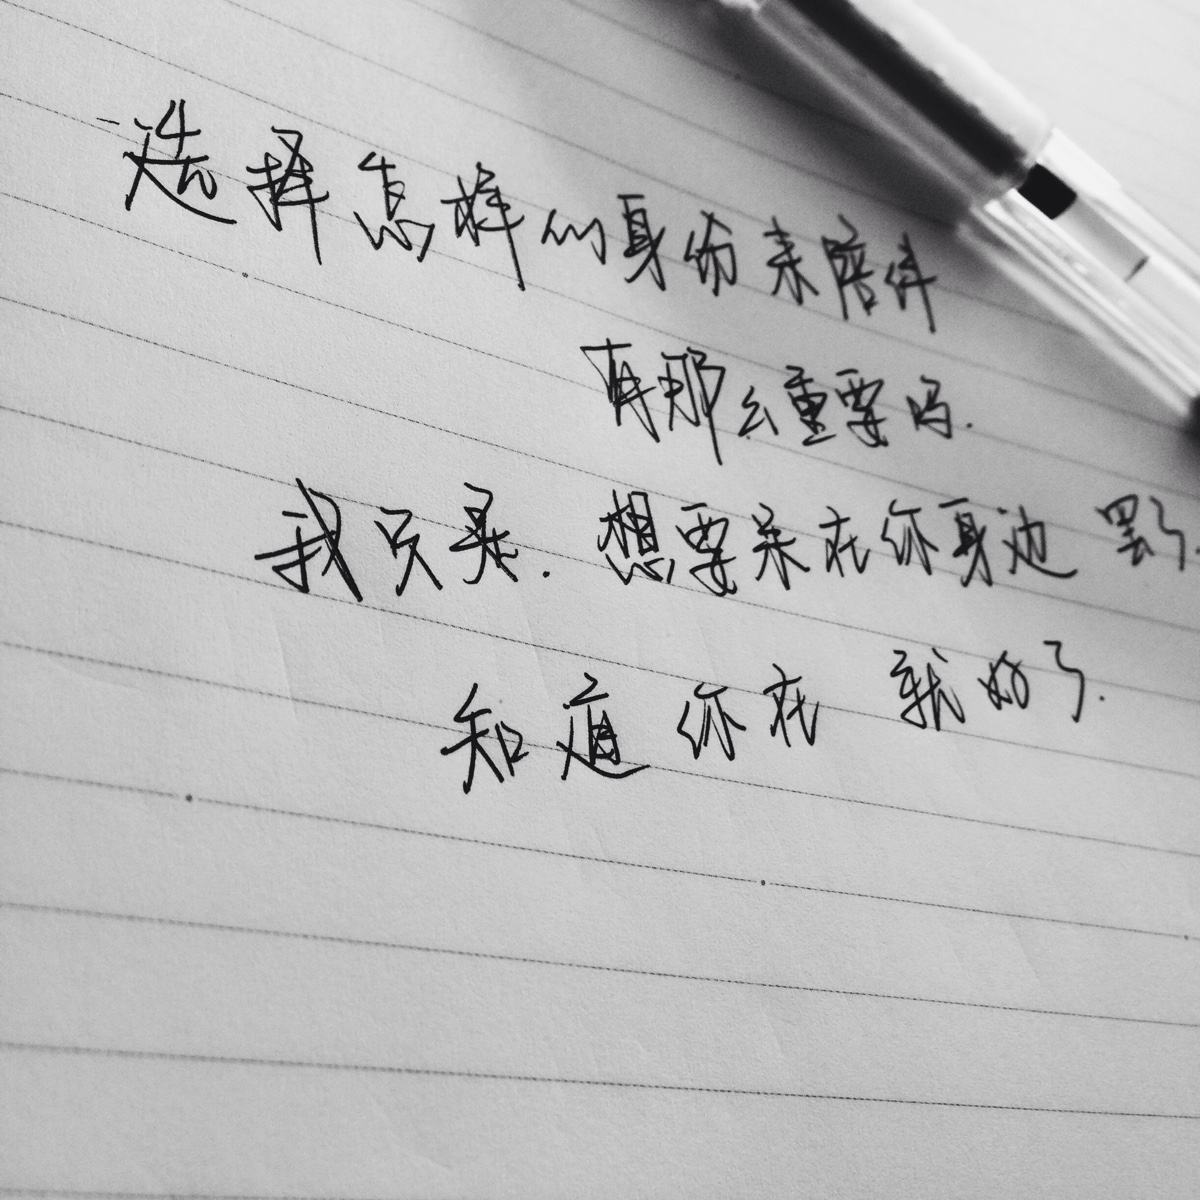 选择怎样的身份来陪伴
有那么重要吗.
我只是.想要呆在你身边 罢了.
知道 你在 就好了.